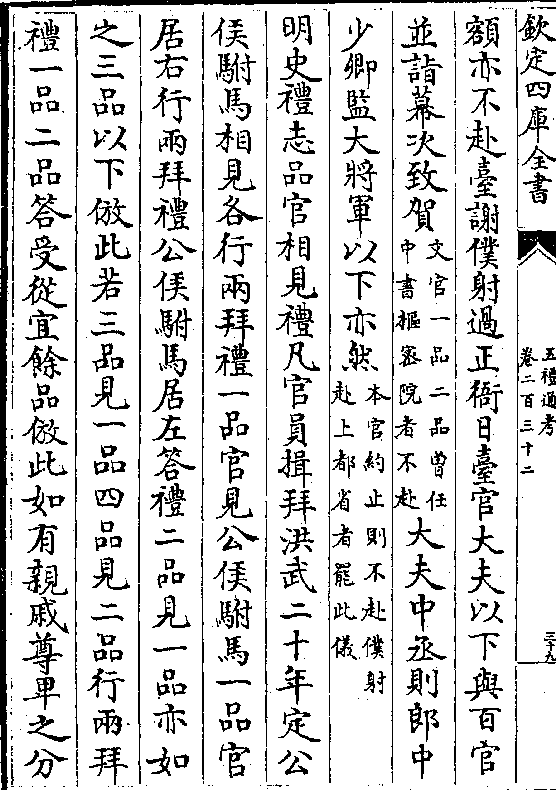 欽定四庫全書
五禮通考
卷二百三十二
三十九
額亦不赴臺謝僕射過正衙日臺官大夫以下與百官
並詣幕次致賀文官一品二品曾任中書樞密院者不赴大夫中丞則郎中
少卿監大將軍以下亦然本官約止則不赴僕射赴上都省者罷此儀
明史禮志品官相見禮凡官員揖拜洪武二十年定公
侯駙馬相見各行兩拜禮一品官見公侯駙馬一品官
居右行兩拜禮公侯駙馬居左答禮二品見一品亦如
之三品以下倣此若三品見一品四品見二品行兩拜
禮一品二品答受從宜餘品倣此如有親戚尊卑之分